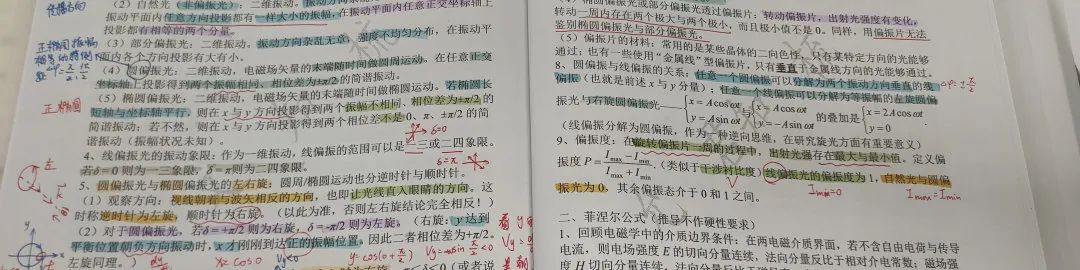 （2）自然光（非偏振光）：二维振动。
振动平面内任意方向投影都有一样大小的振幅，在振动平面内任意正交坐标轴上
投影都有相等的两个分量。
（3）部分偏振光：二维振动。振动方向杂乱无章，强度不均匀分布，在振动平
面内各个方向投影有大有小。
（4）圆偏振光：二维振动，电磁场矢量的末端随时间做圆周运动。在任意正交
坐标轴上投影得到两个振幅相同、相位差为±π/2的简谐振动。
（5）椭圆偏振光：二维振动，电磁场矢量的末端随时间做椭圆运动。若椭圆长
短轴与坐标轴平行，则在x与y方向投影得到两个振幅不相同、相位差为±π/2的
简谐振动；若不然，则在x与y方向投影得到两个相位差不是0、π、±π/2的简
谐振动（振幅状况未知）。
4、线偏振光的振动象限：作为一维振动，线偏振的范围可以是一三或二四象限。
若δ=0则为一三象限，δ=π则为二四象限。
5、圆偏振光与椭圆偏振光的左右旋：圆周/椭圆运动也分逆时针与顺时针。
（1）观察方向：视线朝着与波矢相反的方向，也即让光线直入眼睛的方向。这
时称逆时针为左旋，顺时针为右旋。（以此为准，否则左右旋结论完全相反！）
（2）对于圆偏振光，若δ=+π/2则为右旋，δ=-π/2则为左旋。（右旋：y达到
平衡位置朝负方向振动时，x才刚刚到达正的振幅位置。因此二者相位差为+π/2。
左旋同理。）
正椭圆
δ=0
δ=π
左
右
（4）圆偏振光或部分偏振光透过偏振片：转动偏振片，出射光强度有变化，
转动一周内存在两个极大与两个极小，而且极小值不是0。同样，用偏振片无法
鉴别椭圆偏振光与部分偏振光。
（5）偏振片的材料：常用的是某些晶体的二向色性，只有某特定方向的光能够
通过；也有一些使用“金属线”型偏振片，只有垂直于金属线方向的光能够通过。
8、圆偏振与线偏振的关系：任意一个圆偏振可以分解为两个振动方向垂直的线
偏振（也就是前述x与y分量）；任意一个线偏振可以分解为等振幅的左旋圆偏
振光与右旋圆偏振光 {x=Acosωt y=Asinωt 与 {x=Acosωt y=-Asinωt 的叠加是 {x=2Acosωt y=0.
（线偏振分解为圆偏振，作为一种逆向思维，在研究旋光方面有重要意义）
9、偏振度：在旋转偏振片一周的过程中，出射光强存在最大与最小值。定义偏
振度 P=(Imax-Imin)/(Imax+Imin)（类似于干涉衬比度）线偏振光的偏振度为1，自然光与圆偏
振光为0，其余偏振态介于0和1之间。
Imin=0
Imax=Imin
二、菲涅尔公式（推导不作硬性要求）
1、回顾电磁学中的介质边界条件：在两电磁介质界面，若不含自由电荷与传导
电流，则电场强度E的切向分量连续，法向分量反比于相对介电常数；磁场强